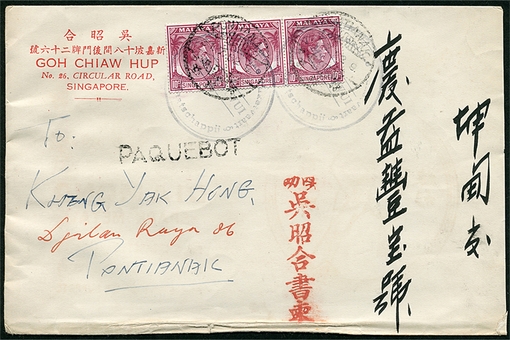 合昭吳
號六十二牌門後間八十坡嘉新
GOH CHIAW HUP
No. 26, CIRCULAR ROAD,
SINGAPORE.
MALAYA MALAYA MALAYA
SINGAPORE SINGAPORE SINGAPORE
To:
PAQUEBOT
KHENG YAK HONG,
Djilan Raya 86
PONTIANAK
吳昭合書柬
坤甸交
慶益豐寶號